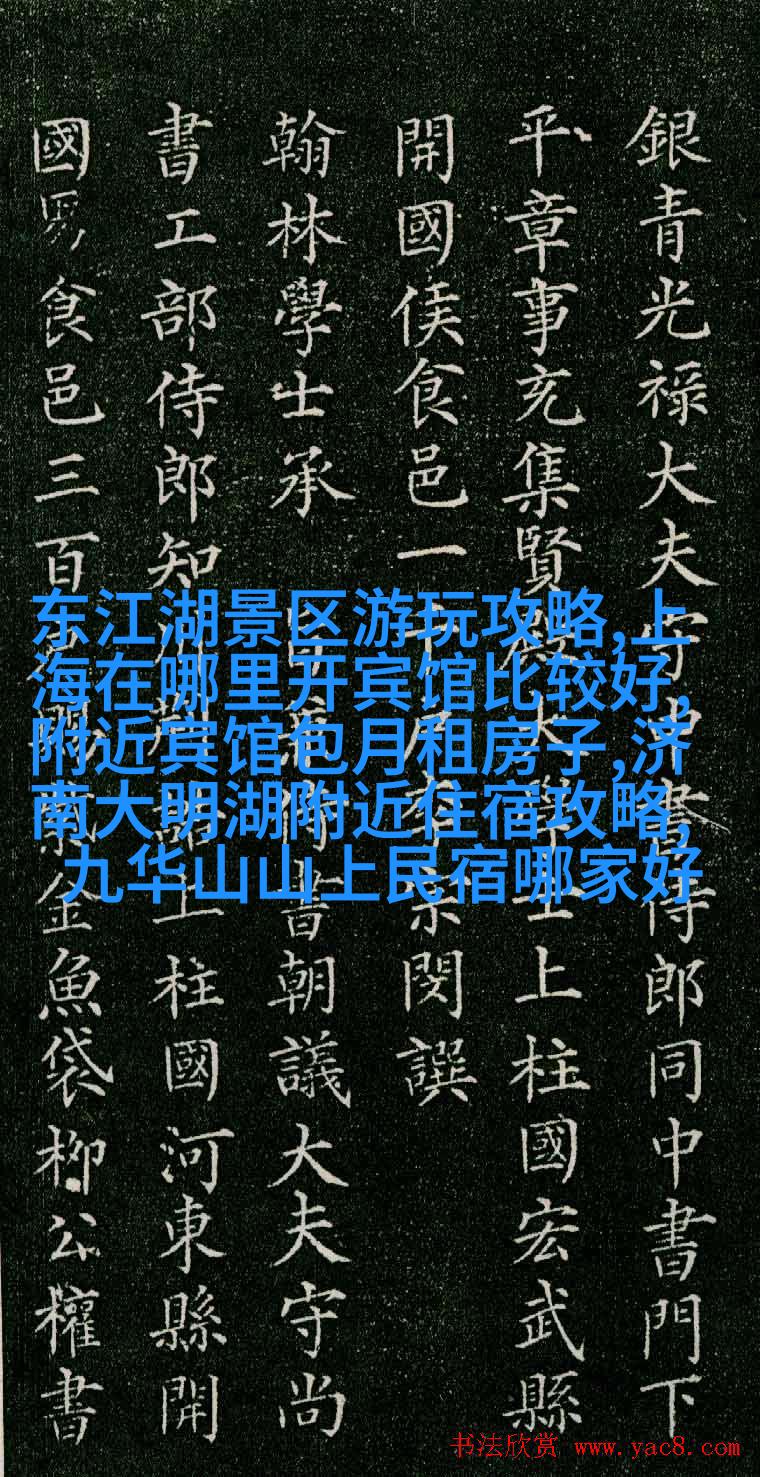 銀青光禄大夫守中書侍郎同中書門下
平章事充集賢殿大學士上柱國宏武縣
開國侯食邑一千户李宗閔撰
翰林學士承旨兼侍書朝議大夫守尚
書工部侍郎知制誥上柱國河東縣開
國男食邑三百户賜紫金魚袋柳公權書
东江湖景区游玩攻略,上
海在哪里开宾馆比较好,
附近宾馆包月租房子,济
南大明湖附近住宿攻略,
九华山山上民宿哪家好
书法欣赏 www.yac8.com